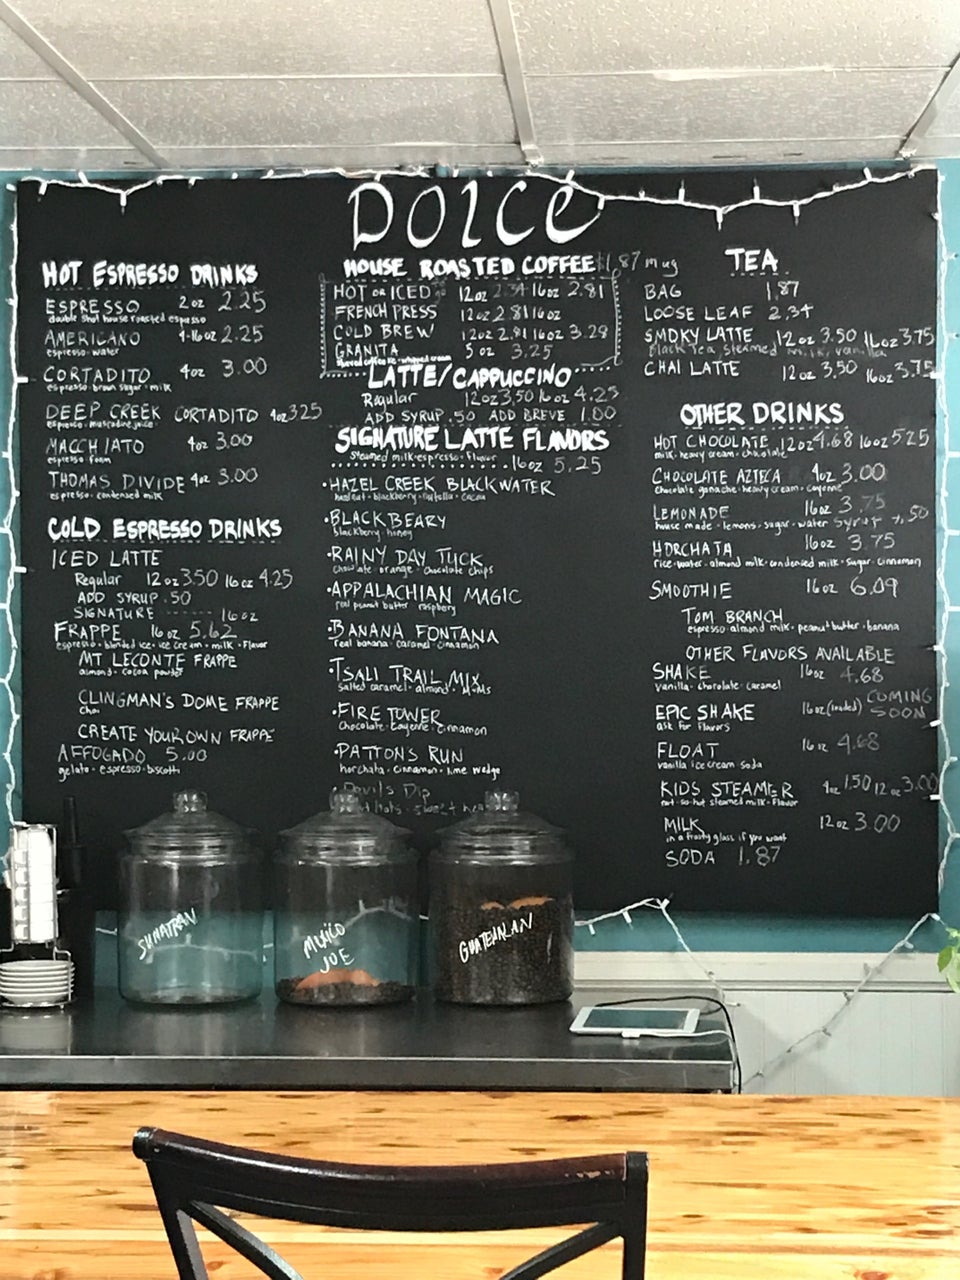 DOLCE
HOT ESPRESSO DRINKS
ESPRESSO 2oz 2.25
double shot house roasted espresso
AMERICANO 4-16oz 2.25
espresso·water
CORTADITO 4oz 3.00
espresso·brown sugar·milk
DEEP CREEK CORTADITO 4oz 3.25
espresso·muscadine juice
MACCHIATO 4oz 3.00
espresso foam
THOMAS DIVIDE 4oz 3.00
espresso·condensed milk
COLD ESPRESSO DRINKS
ICED LATTE
Regular 12oz 3.50 16oz 4.25
ADD SYRUP .50
SIGNATURE ------ 16oz
FRAPPE 16oz 5.62
espresso·blended ice·ice cream·milk·flavor
MT LECONTE FRAPPE
almond·cocoa powder
CLINGMAN'S DOME FRAPPE
Chai
CREATE YOUR OWN FRAPPE
AFFOGADO 5.00
gelato·espresso·biscotti
HOUSE ROASTED COFFEE $1.87 mug
HOT or ICED 12oz 2.34 16oz 2.81
FRENCH PRESS 12oz 2.81 16oz
COLD BREW 12oz 2.81 16oz 3.29
GRANITA 5oz 3.25
whipped cream
LATTE/CAPPUCCINO
Regular 12oz 3.50 16oz 4.25
ADD SYRUP .50 ADD BREVE 1.00
SIGNATURE LATTE FLAVORS
Steamed milk·espresso·flavor
16oz 5.25
·HAZEL CREEK BLACKWATER
hazelnut·blackberry·nutella·cocoa
·BLACK BEARY
blackberry honey
·RAINY DAY TUCK
chocolate·orange·chocolate chips
·APPALACHIAN MAGIC
real peanut butter raspberry
·BANANA FONTANA
real banana·caramel·cinnamon
·TSALI TRAIL MIX
salted caramel·almond·M&Ms
·FIRE TOWER
Chocolate·Cayenne·Cinnamon
·PATTON'S RUN
horchata·cinnamon·lime wedge
·Devils Dip
TEA
BAG 1.87
LOOSE LEAF 2.34
SMOKY LATTE 12oz 3.50 16oz 3.75
black tea steamed milk, vanilla
CHAI LATTE 12oz 3.50 16oz 3.75
OTHER DRINKS
HOT CHOCOLATE 12oz 4.68 16oz 5.25
milk·heavy cream·chocolate
CHOCOLATE AZTECA 4oz 3.00
chocolate ganache·heavy cream·cayenne
LEMONADE 16oz 3.75
house made·lemons·sugar·water syrup +.50
HORCHATA 16oz 3.75
rice·water·almond milk·condensed milk·sugar·cinnamon
SMOOTHIE 16oz 6.09
TOM BRANCH
espresso·almond milk·peanut butter·banana
OTHER FLAVORS AVAILABLE
SHAKE 16oz 4.68
vanilla·chocolate·caramel
EPIC SHAKE 16oz (loaded) COMING SOON
ask for flavors
FLOAT 16oz 4.68
vanilla ice cream·soda
KIDS STEAMER 4oz 1.50 12oz 3.00
not-so-hot steamed milk·flavor
MILK 12oz 3.00
in a frosty glass if you want
SODA 1.87
SUMATRAN
MEXICO
JOE
GUATEMALAN